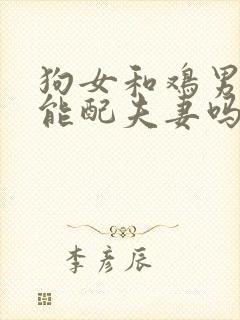 狗女和鸡男
能配夫妻吗
李彦辰